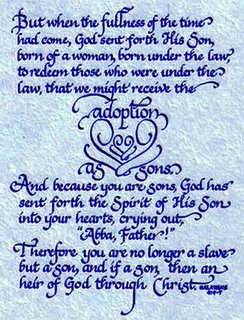 But when the fullness of the time
had come, God sent forth His Son,
born of a woman, born under the law,
to redeem those who were under the
law, that we might receive the
adoption
as sons.
And because you are sons, God has
sent forth the Spirit of His Son
into your hearts, crying out,
"Abba, Father!"
Therefore you are no longer a slave
but a son, and if a son, then an
heir of God through Christ. GALATIANS
4:4-7